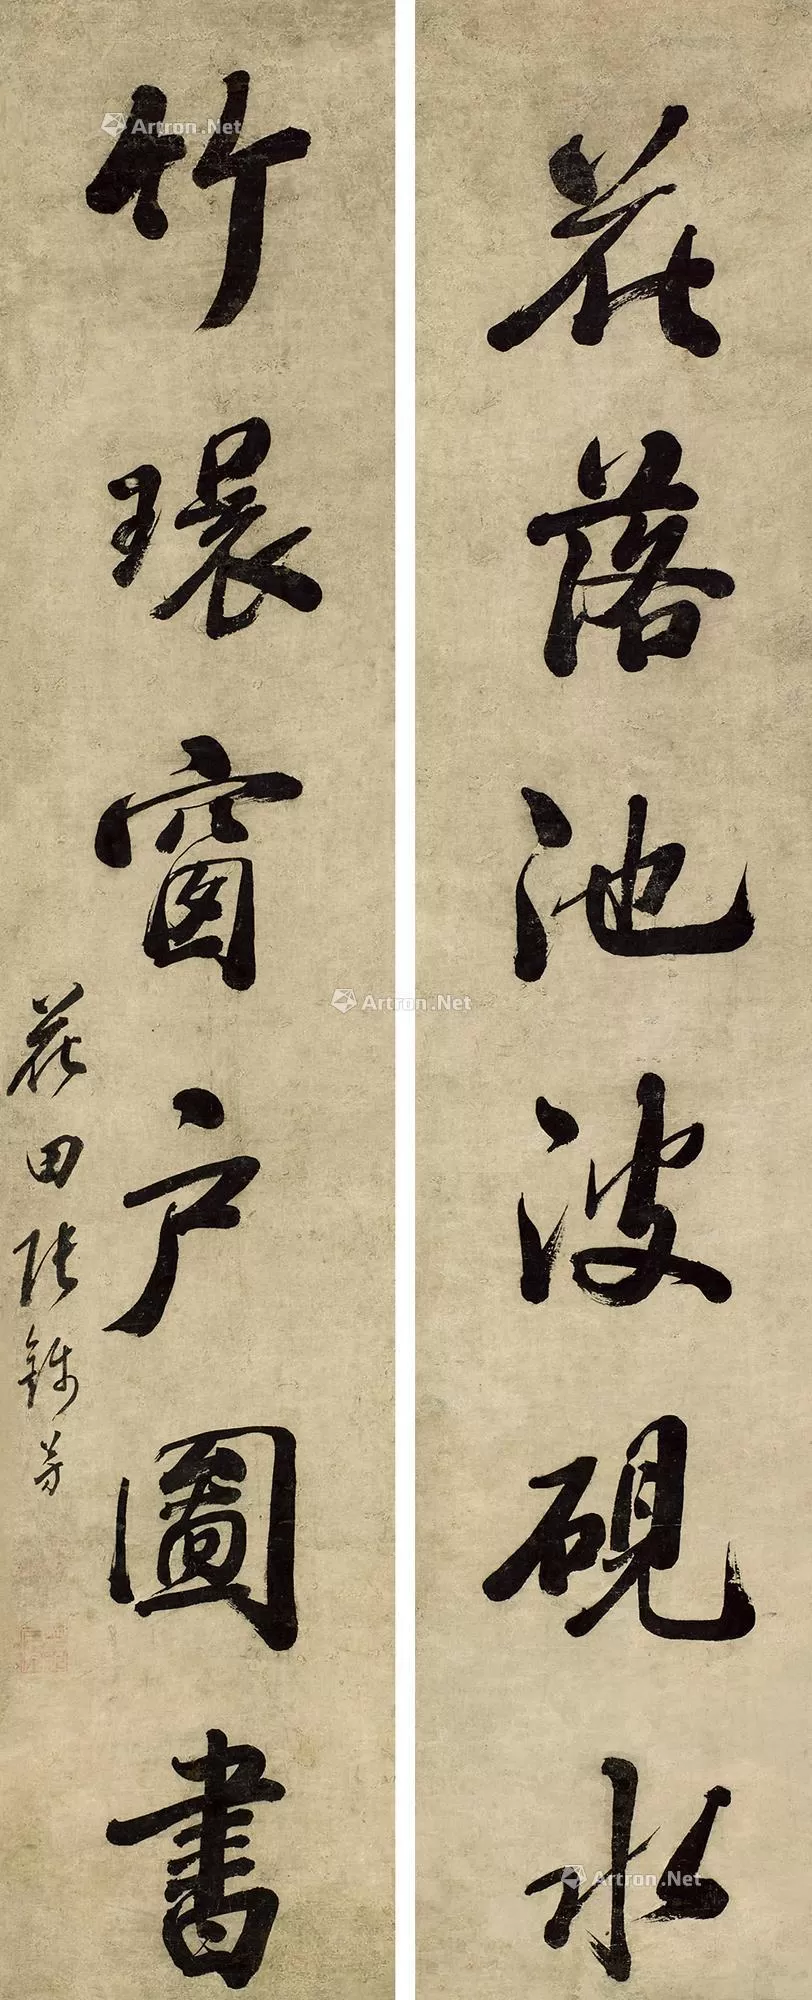 花落池波砚水
竹環窗户圖書
花田張錦芳
Artron.Net
Artron.Net
Artron.Net